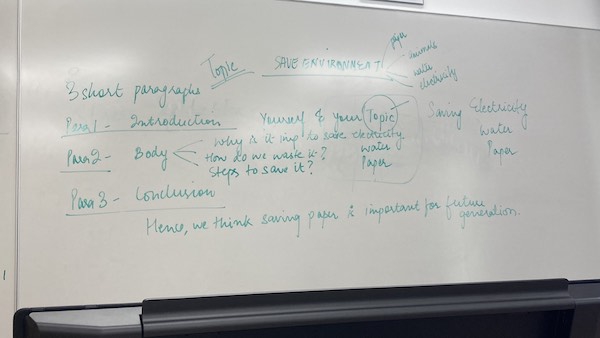 Topic SAVE ENVIRONMENT
paper
animals
water
electricity
3 short paragraphs
Para 1 - Introduction Yourself & your Topic Saving Electricity
water
Paper
Para 2 - Body Why is it imp to save electricity
How do we waste it? water
Steps to save it? Paper
Para 3 - Conclusion
Hence, we think saving paper is important for future
generation.